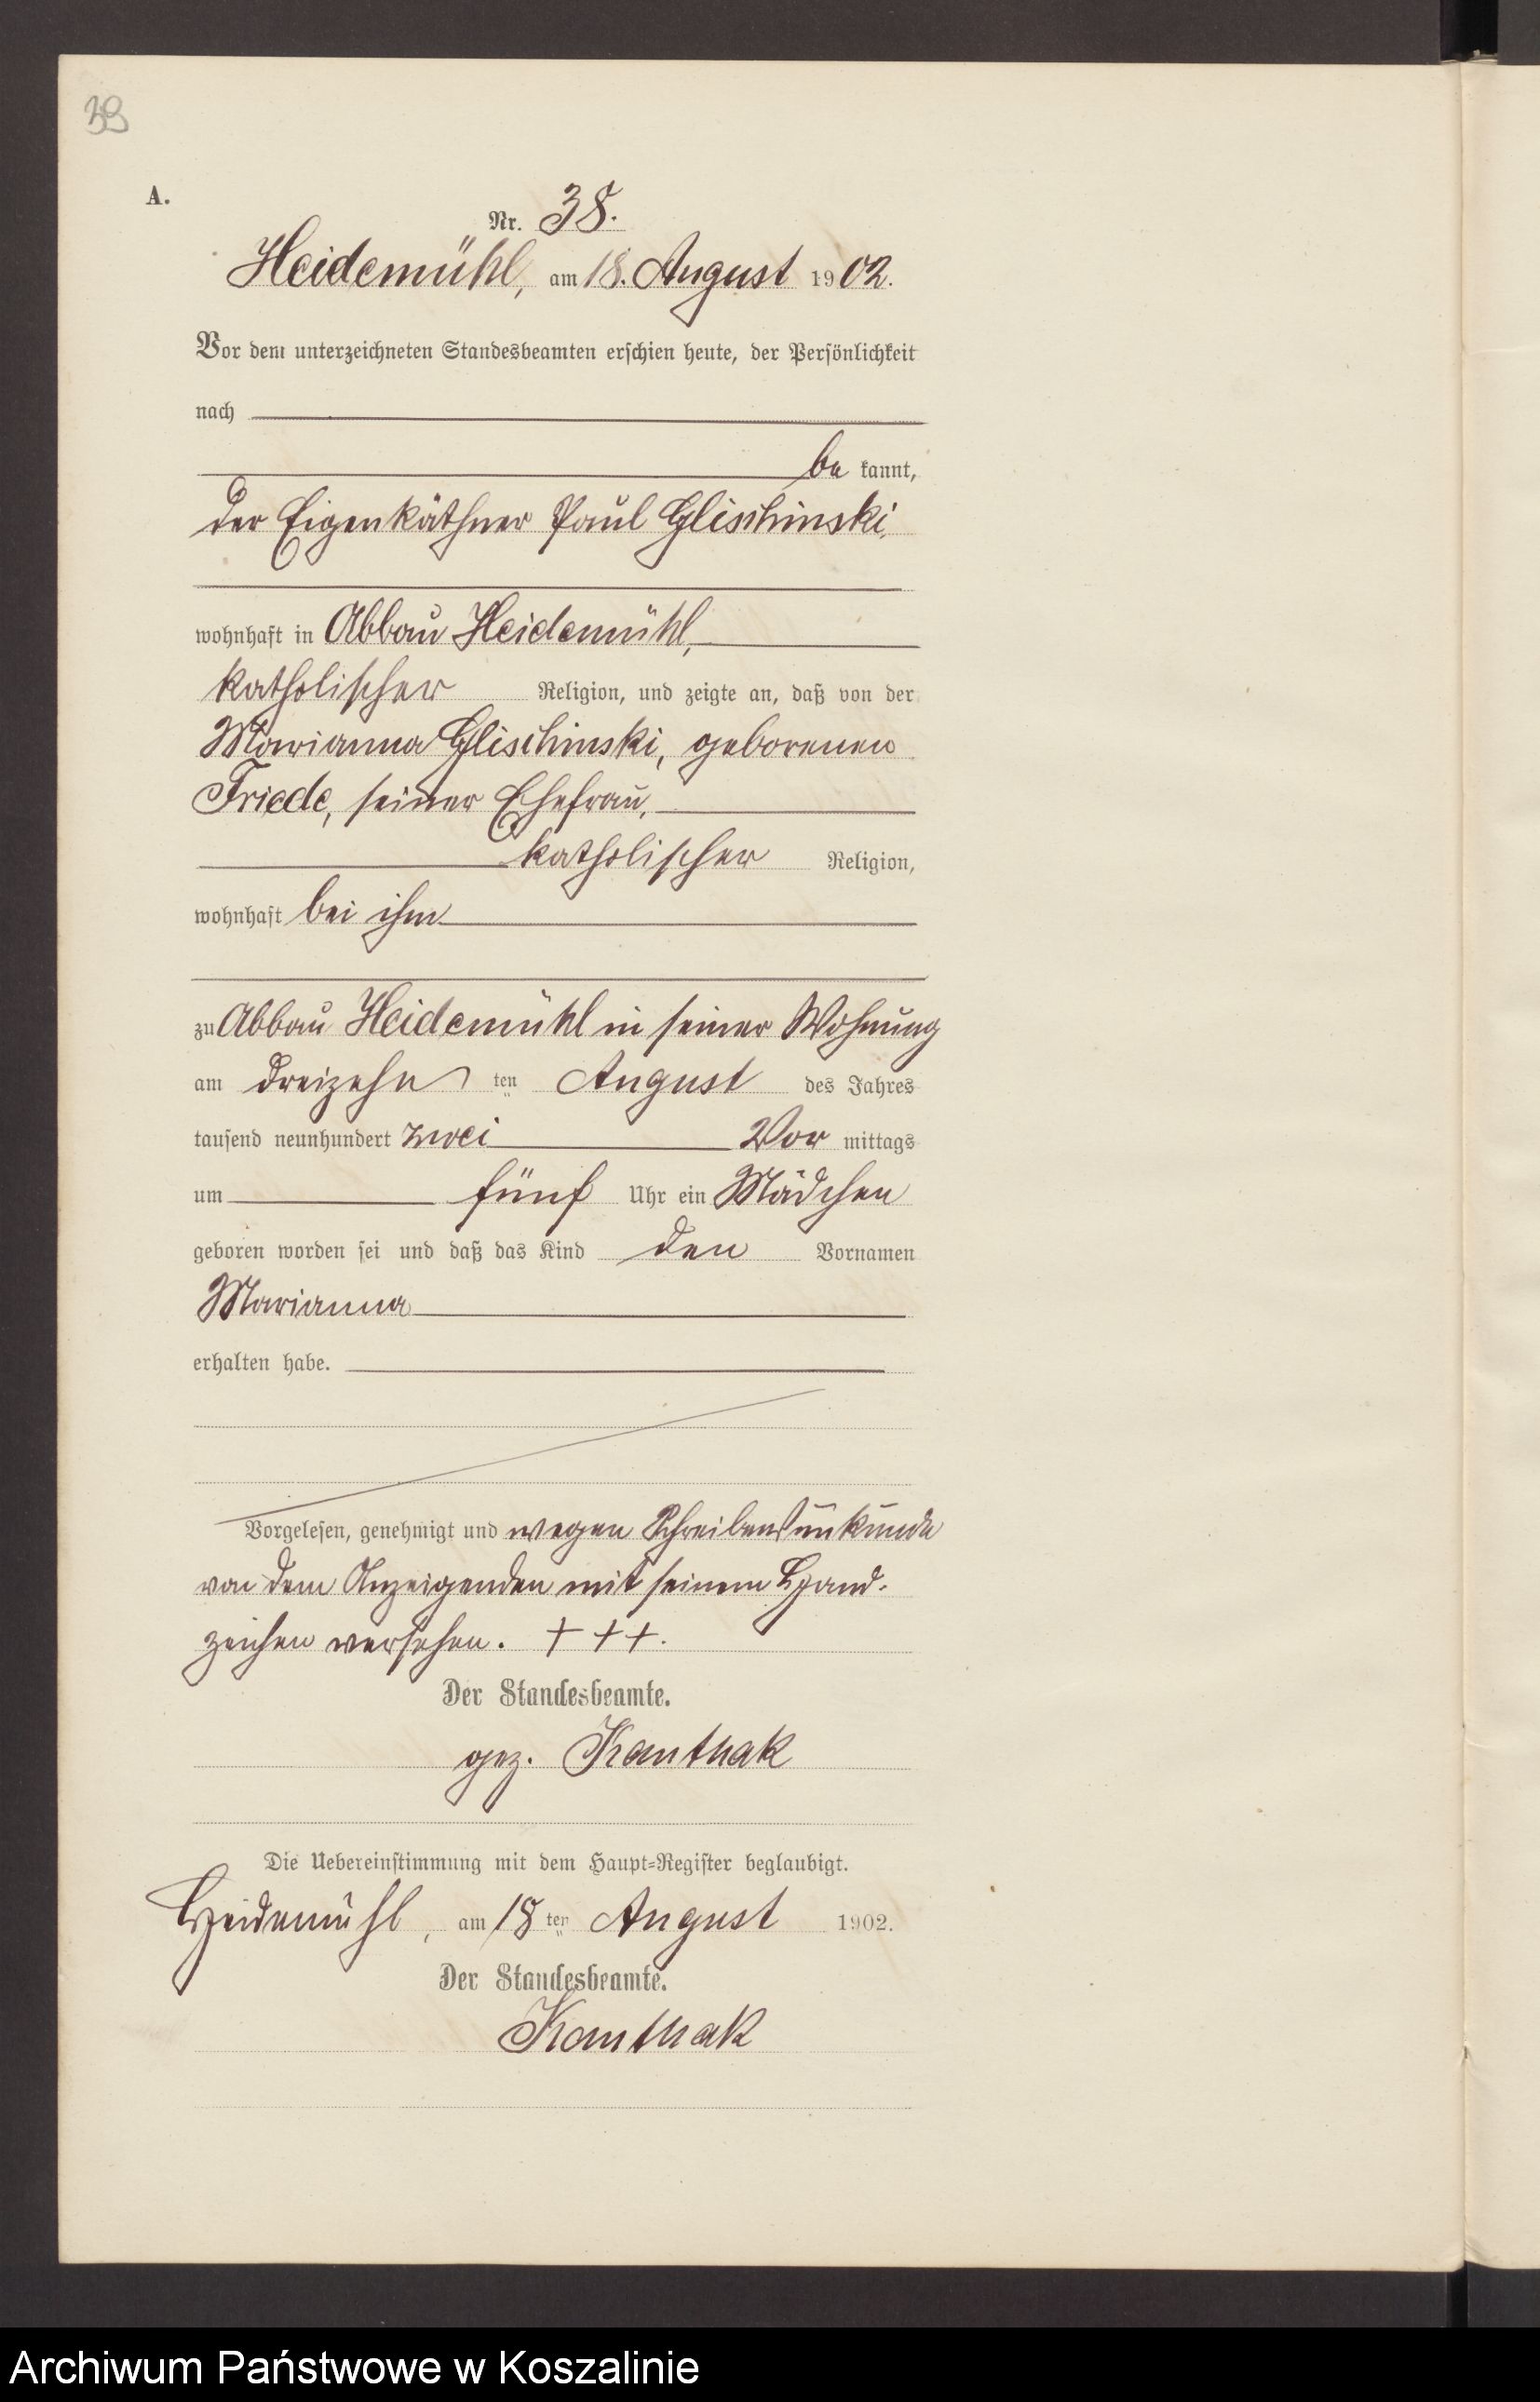 39
A.
Nr. 38.
Heidemühl, am 18. August 1902.
Vor dem unterzeichneten Standesbeamten erschien heute, der Persönlichkeit
nach
be kannt,
der Eigenkäthner Paul Glischinski,
wohnhaft in Abbau Heidemühl,
katholischer Religion, und zeigte an, daß von der
Marianna Glischinski, geborenen
Friede, seiner Ehefrau,
katholischer Religion,
wohnhaft bei ihm
zu Abbau Heidemühl in seiner Wohnung
am dreizehn ten August des Jahres
tausend neunhundert zwei Vor mittags
um fünf Uhr ein Mädchen
geboren worden sei und daß das Kind den Vornamen
Marianna
erhalten habe.
Vorgelesen, genehmigt und wegen Schreibensunkunde
von dem Anzeigenden mit seinem Hand-
zeichen versehen. + + +.
Der Standesbeamte.
gez. Kanthak
Die Uebereinstimmung mit dem Haupt=Register beglaubigt.
Heidemühl, am 18 ten August 1902.
Der Standesbeamte.
Kanthak
Archiwum Państwowe w Koszalinie